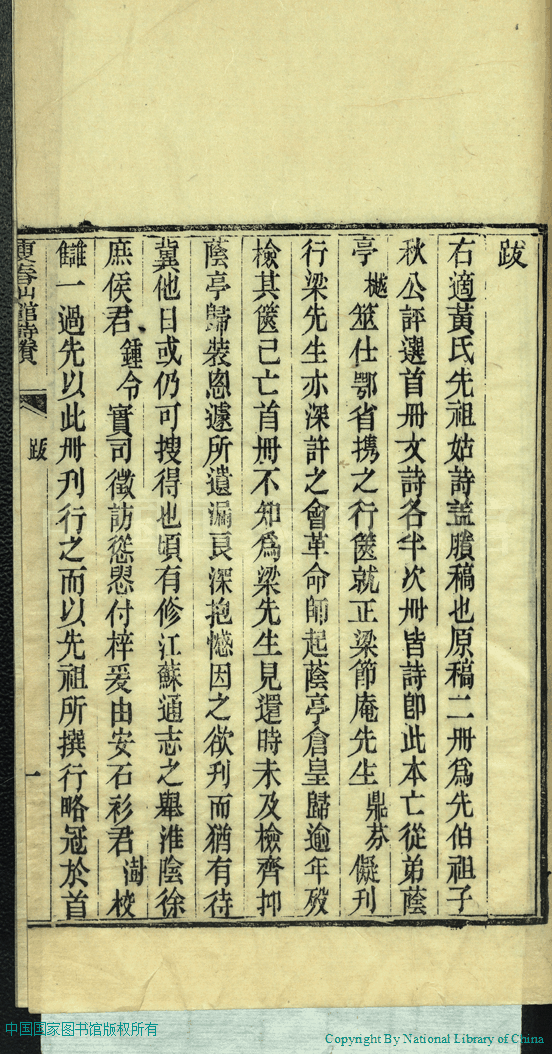 跋
右適黃氏先祖姑詩蓋賸稿也原稿二冊爲先伯祖子
秋公評選首冊文詩各半次冊皆詩卽此本亡從弟蔭
亭樾筮仕鄂省攜之行篋就正梁節庵先生鼎芬儗刊
行梁先生亦深許之會革命師起蔭亭倉皇歸逾年歿
檢其篋已亡首冊不知爲梁先生見還時未及檢齊抑
蔭亭歸裝悤遽所遺漏良深抱憾因之欲刊而猶有待
冀他日或仍可搜得也頃有修江蘇通志之舉淮陰徐
庶侯君鍾令實司徵訪慫恿付梓爰由安石衫君澍校
讎一過先以此冊刋行之而以先祖所撰行略冠於首
春山館詩賸
跋
一
中国国家图书馆版权所有
Copyright By National Library of China